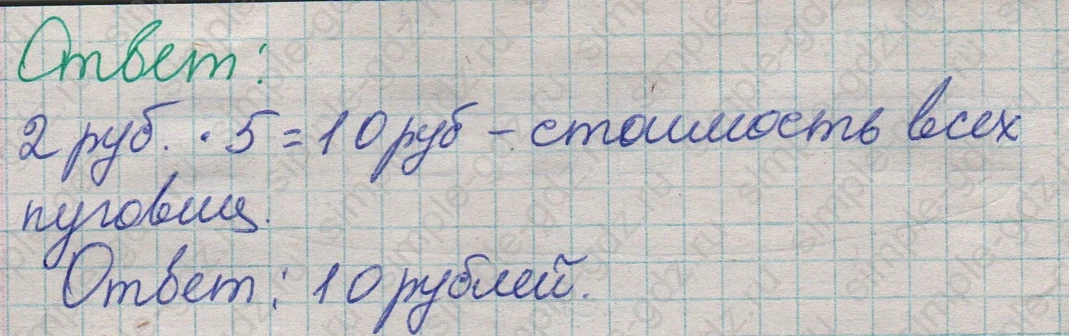 Ответ:
2 руб. · 5 = 10 руб – стоимость всех
пуговиц.
Ответ: 10 рублей.